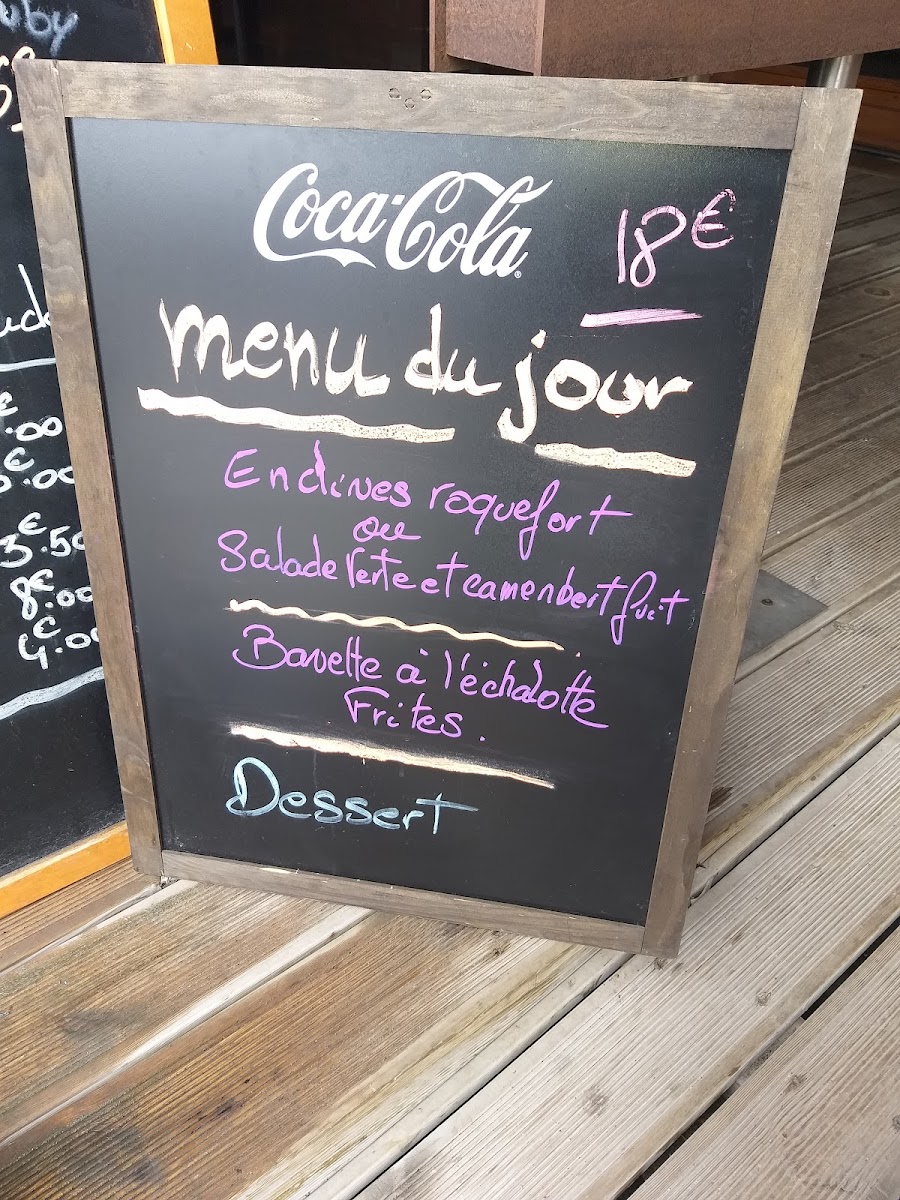 Coca-Cola
18€
menu du jour
Endives roquefort
ou
Salade Verte et camenbert fruit
Bavette à l'échalotte
Frites.
Dessert
3€.50
8€.00
4€.00